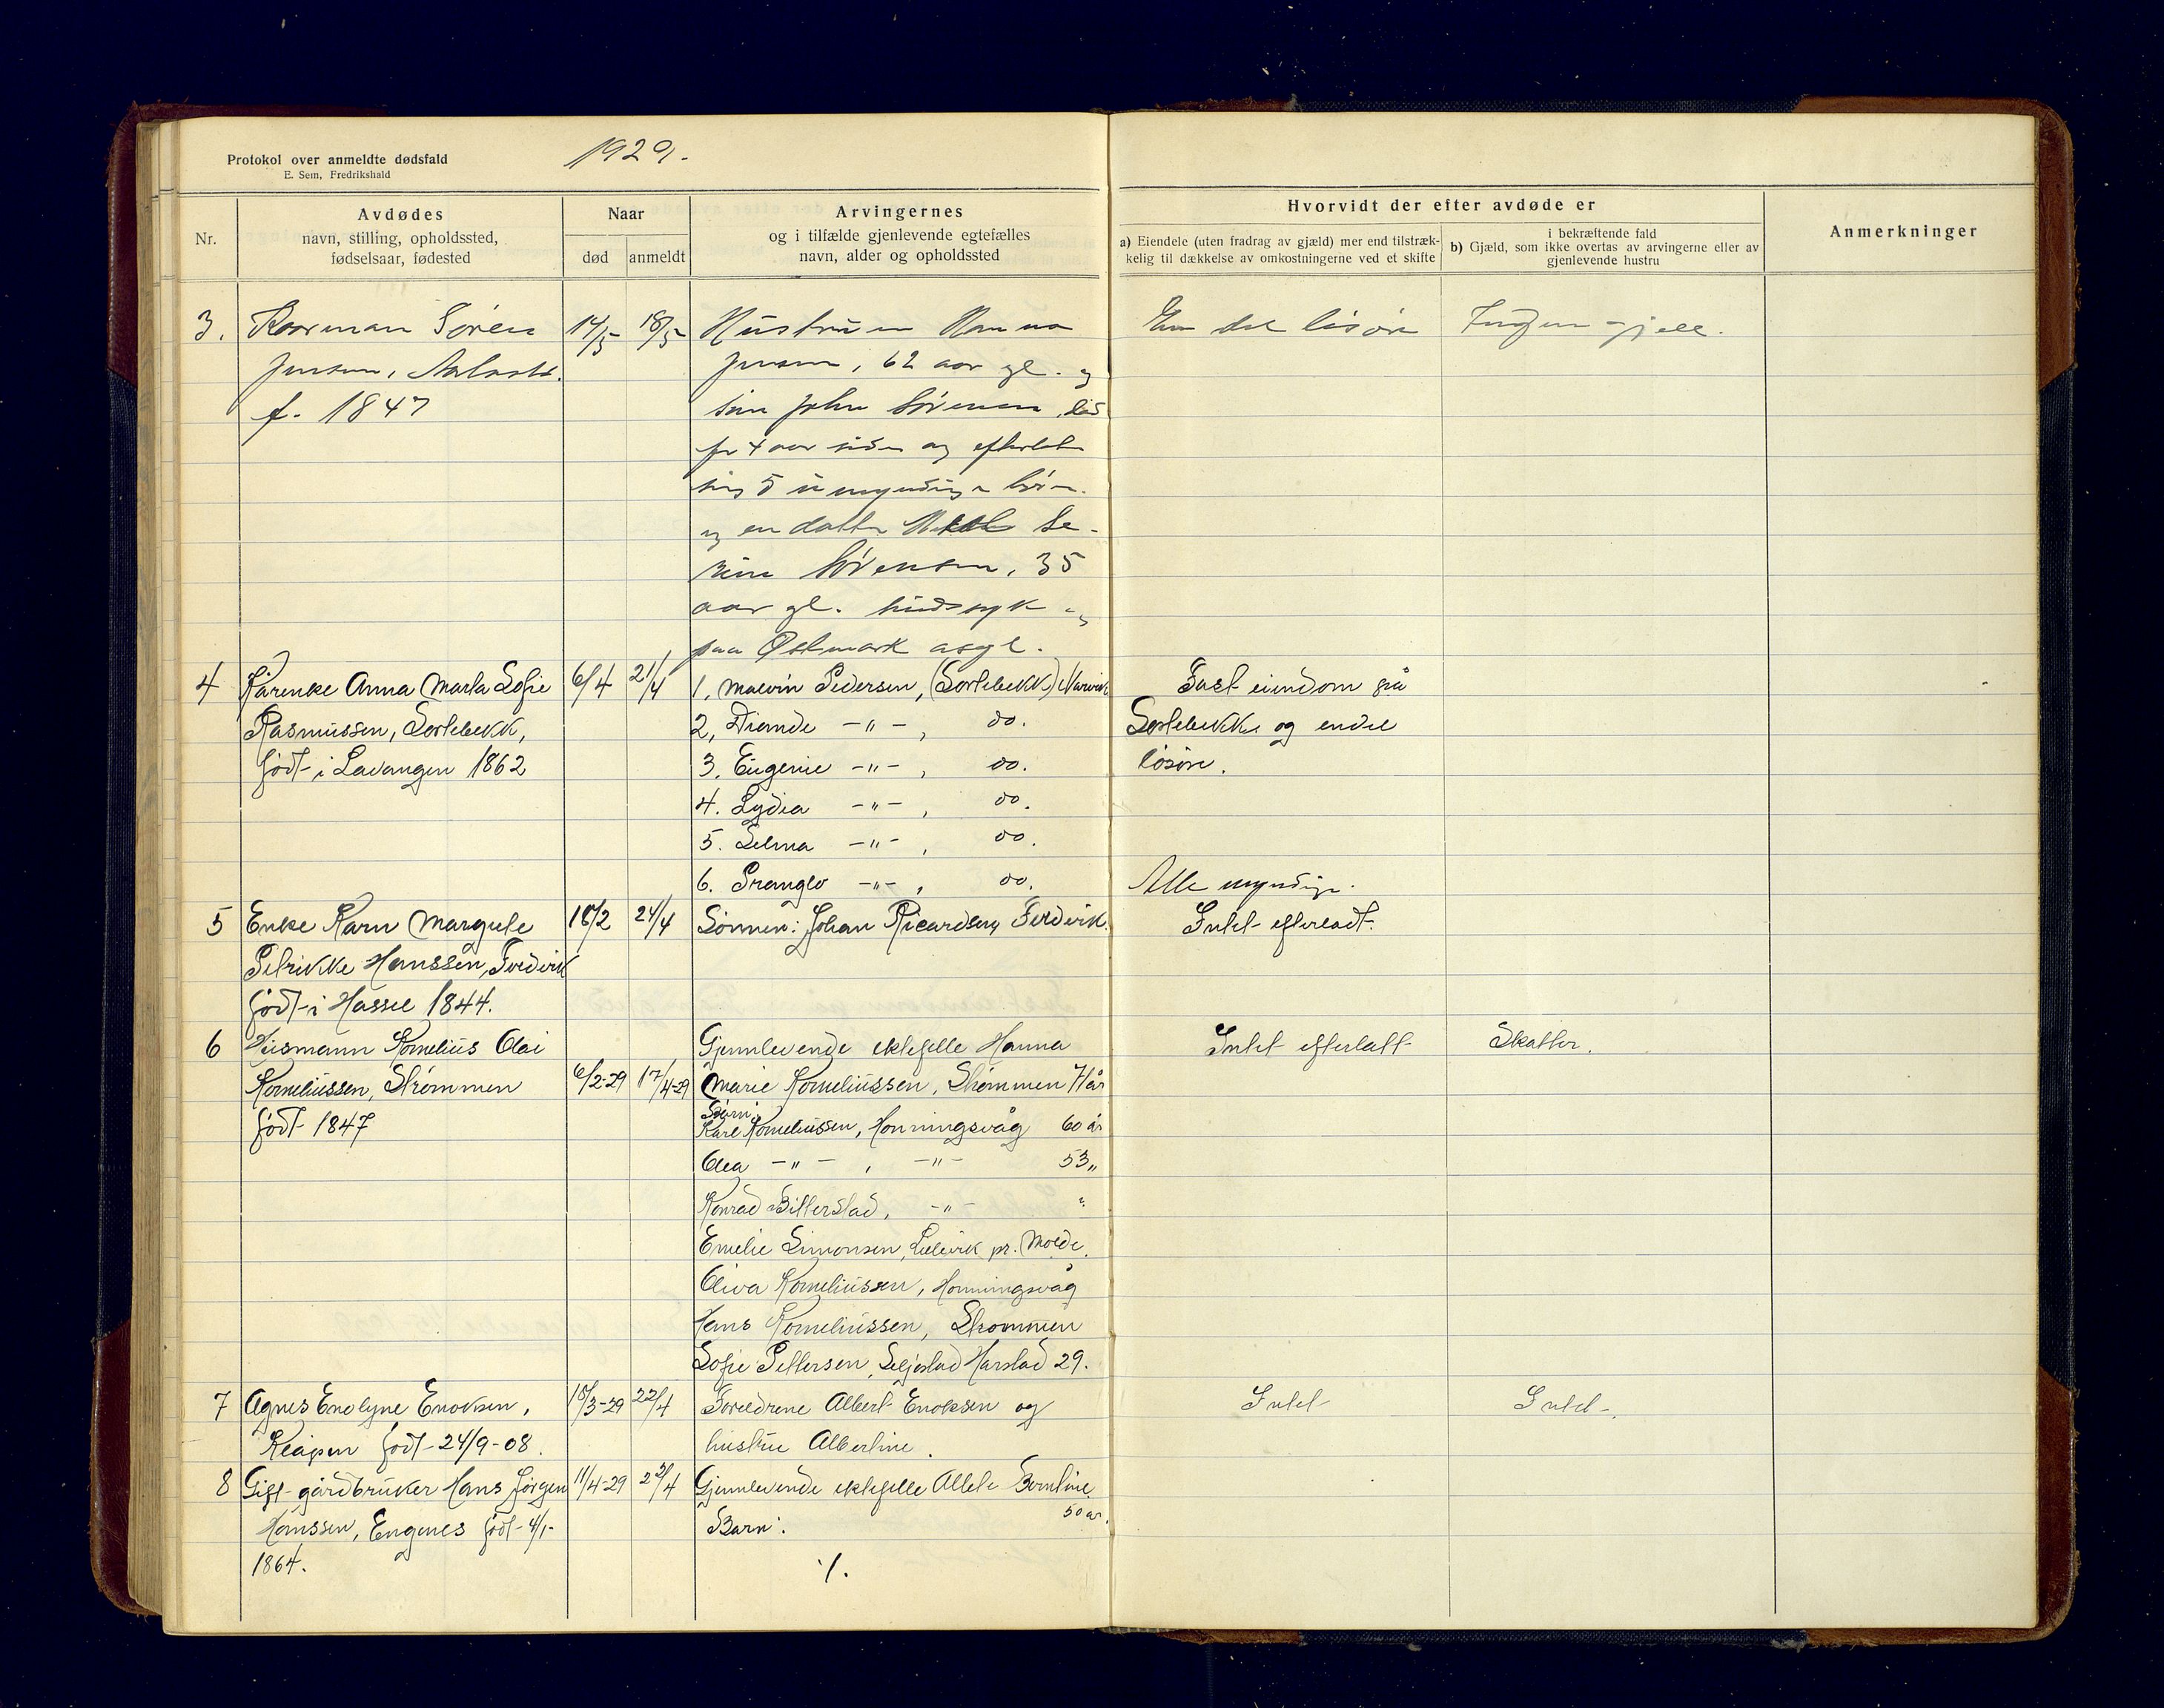 Protokol over anmeldte dødsfald
E. Sem, Fredrikshald
1929.
Nr.
Avdødes
navn, stilling, opholdssted,
fødselsaar, fødested
Naar
død
anmeldt
Arvingernes
og i tilfælde gjenlevende egtefælles
navn, alder og opholdssted
Hvorvidt der efter avdøde er
a) Eiendele (uten fradrag av gjæld) mer end tilstræk-
kelig til dækkelse av omkostningerne ved et skifte
i bekræftende fald
b) Gjæld, som ikke overtas av arvingerne eller av
gjenlevende hustru
Anmerkninger
3. Sören 14/5 18/5 Hustruen Hanna
Jensen, 62 aar gl. og
f. 1847 sön John Sörensen, död
for 4 aar siden og efterlot
sig 5 umyndige börn.
og en datter Se-
rine Sörensen, 35
aar gl. sindssyk og
paa Østmark asyl.
En del lösöre Ingen gjeld.
4 Anna Marta Sofie 6/4 21/4 1, Malvin Pedersen, (Sortebekk) Narvik
Rasmussen, Sortebekk, 2, -"-, do.
född i Lavangen 1862 3. Eugenie -"-, do.
4. Lydia -"-, do.
5. Selma -"-, do.
6. -"-, do.
Fast eiendom på
Sortebekk og endel
lösöre.
Alle myndige.
5 Enke Karn Margrete 18/2 24/4 Sönnen: Johan Ricardsen,
Petrikke Hanssen,
född i Hassel 1844.
Intet efterladt.
6 Husmann Kornelius Olai Gjenlevende ektefelle Hanna
Korneliussen, Strømmen 6/2-29 17/4-29 Marie Korneliussen, Strømmen 71 år
född 1847 Barn:
Karl Korneliussen, Honningsvåg 60 år
Olea -"-, -"- 53"
Konrad Bitterstad, -"- "
Emelie Simonsen, pr. Molde.
Oliva Korneliussen, Honningsvåg
Hans Korneliussen, Strømmen
Sofie Pettersen, Seljestad Harstad 29.
Intet efterlatt Skatter.
7 Agnes Enelyne Enoksen, 18/3-29 22/4 Foreldrene Albert Enoksen og
född 24/9-08. hustru Albertine.
Intet Intet
8 Gift gårdbruker Hans Jörgen 11/4-29 23/4 Gjenlevende ektefelle
Hanssen, Engenes född 4/1- Barn: 50 år.
1864. ./.